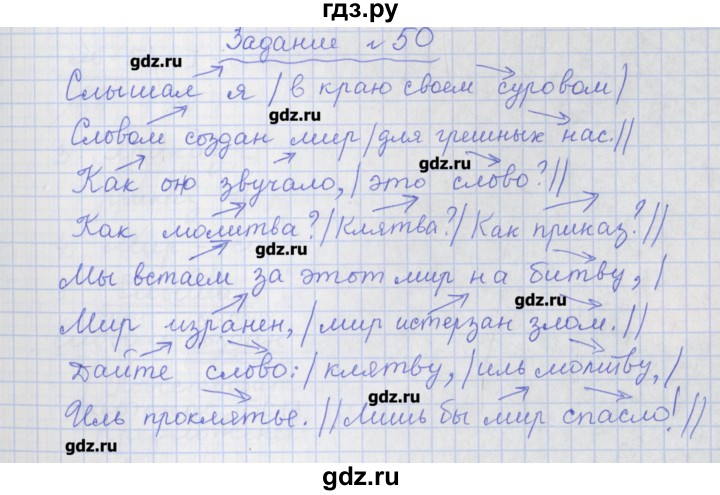 гдз.ру
Задание №50
gdz.ru
Слышал я / в краю своем суровом /
gdz.ru
Словом создан мир / для грешных нас. //
gdz.ru
Как оно звучало, / это слово? //
Как молитва? / Клятва? / Как приказ? //
gdz.ru
Мы встаем за этот мир на битву, /
gdz.ru
Мир изранен, / мир истерзан злом. //
Дайте слово: / клятву, / иль молитву, /
gdz.ru
Иль проклятье. // Лишь бы мир спасло! //
gdz.ru
gdz.ru